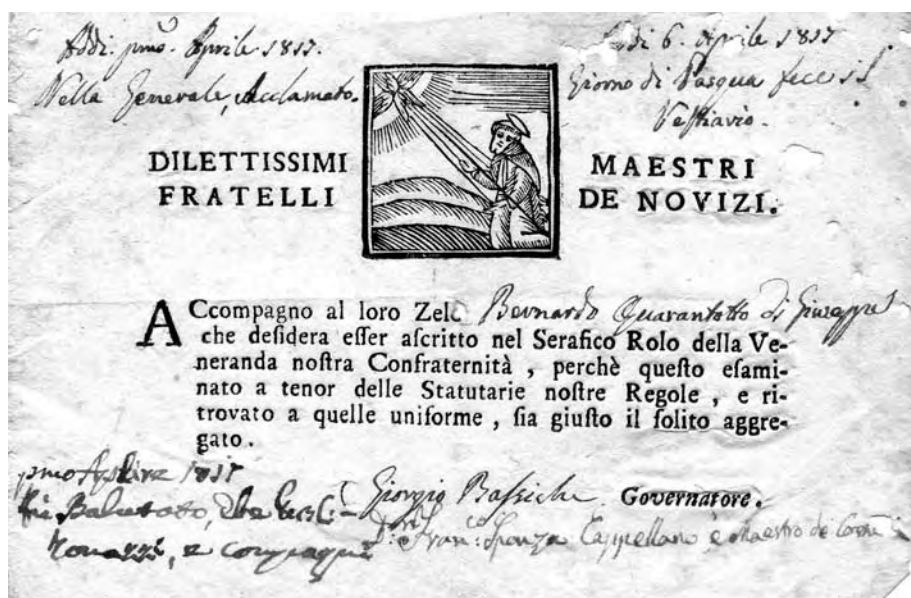 Addi: pmo. Aprile 1817.
Nella Generale, Acclamato.
Addi 6. Aprile 1817
Giorno di Pasqua fece il
Vestiario.
DILETTISSIMI
FRATELLI
MAESTRI
DE NOVIZI.
ACcompagno al loro Zelo Bernardo Quarantotto di Giuseppe
che deſidera eſſer aſcritto nel Serafico Rolo della Ve-
neranda noſtra Confraternità , perchè queſto eſami-
nato a tenor delle Statutarie noſtre Regole , e ri-
trovato a quelle uniforme , ſia giuſto il ſolito aggre-
gato .
pmo Aprile 1817
fu Balotato,
e compagni
Giorgio Governatore .
D: Franc: Sponza Cappellano e Maestro de